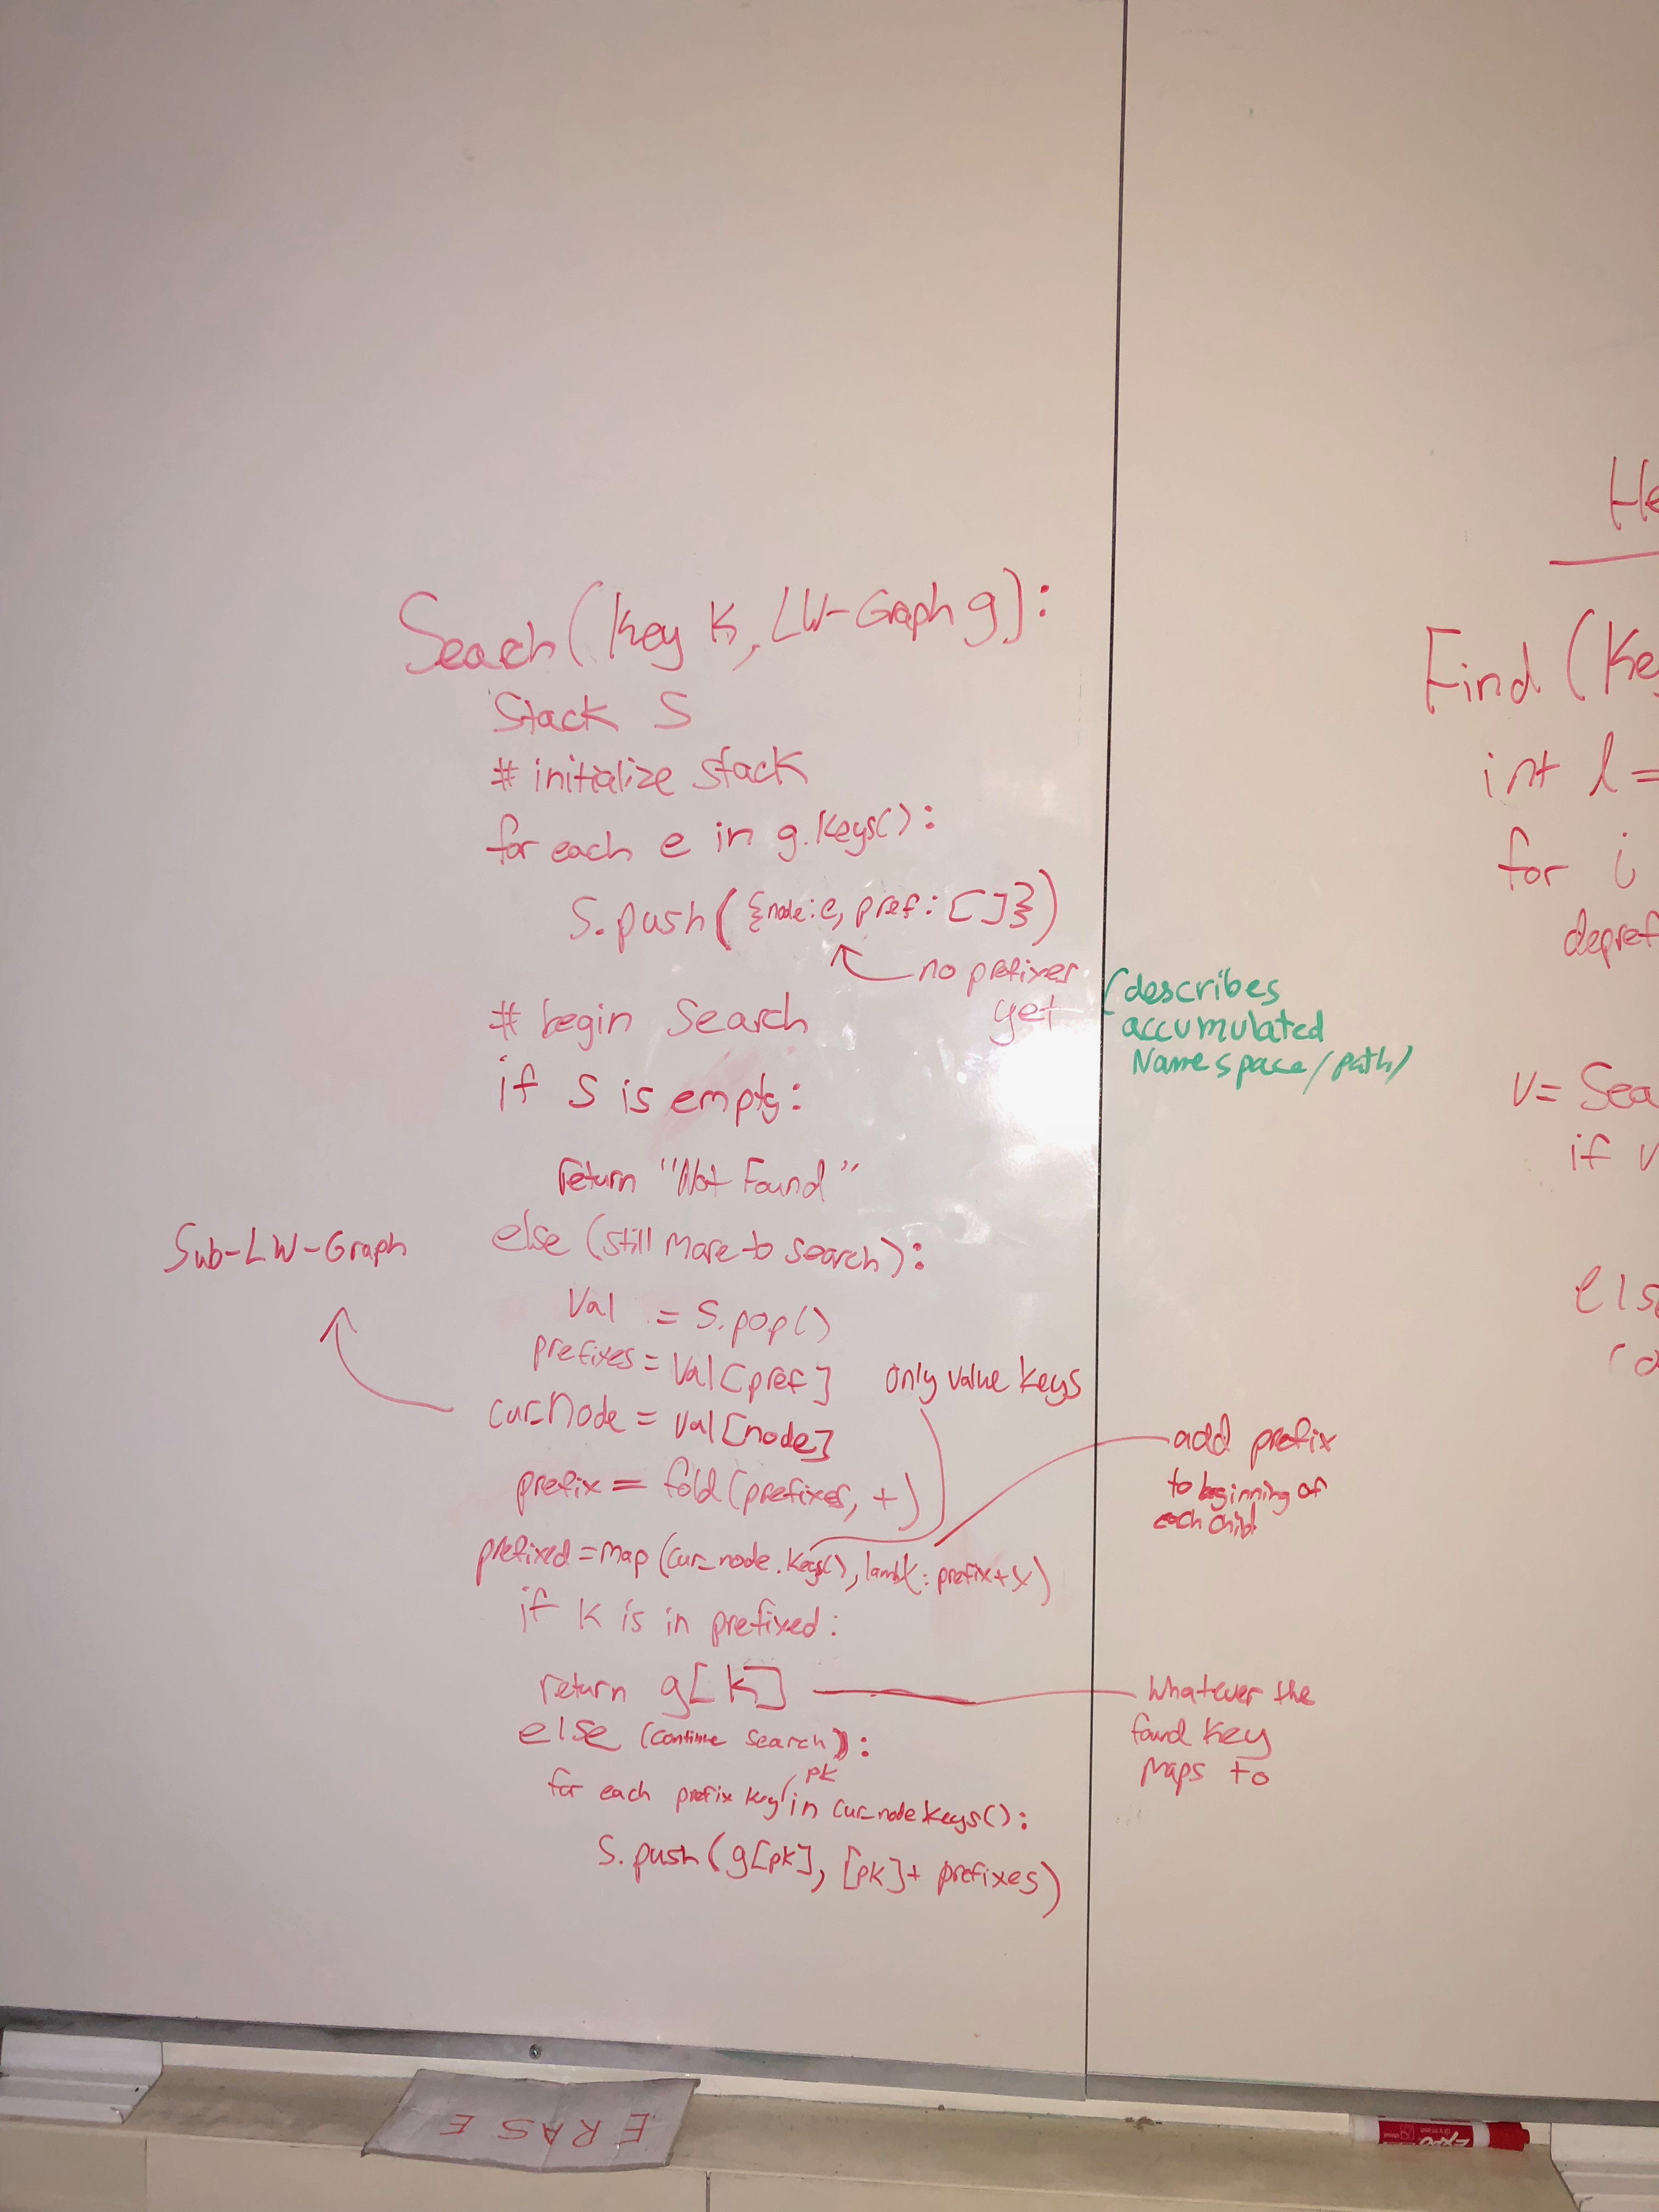 Search(Key K, LW-Graph g):
Stack S
# initialize stack
for each e in g.keys():
S.push({node:e, pref:[]})
no prefixer
yet
(describes
accumulated
Namespace/path/
# begin Search
if S is empty:
return "Not Found"
Sub-LW-Graph
else (still more to search):
Val = S.pop()
prefixes = Val[pref]
only value keys
cur_node = Val[node]
prefix = fold(prefixes, +)
add prefix
to beginning of
each child
prefixed = map(cur_node.keys(), lambx: prefix+x)
if K is in prefixed:
return g[K]
Whatever the
found key
maps to
else (continue search):
for each prefix key pk in cur_node keys():
S.push(g[pk], [pk]+ prefixes)
He
Find (Ke
int l =
for i
depref
v= Sea
if v
els
ERASE
EXPO